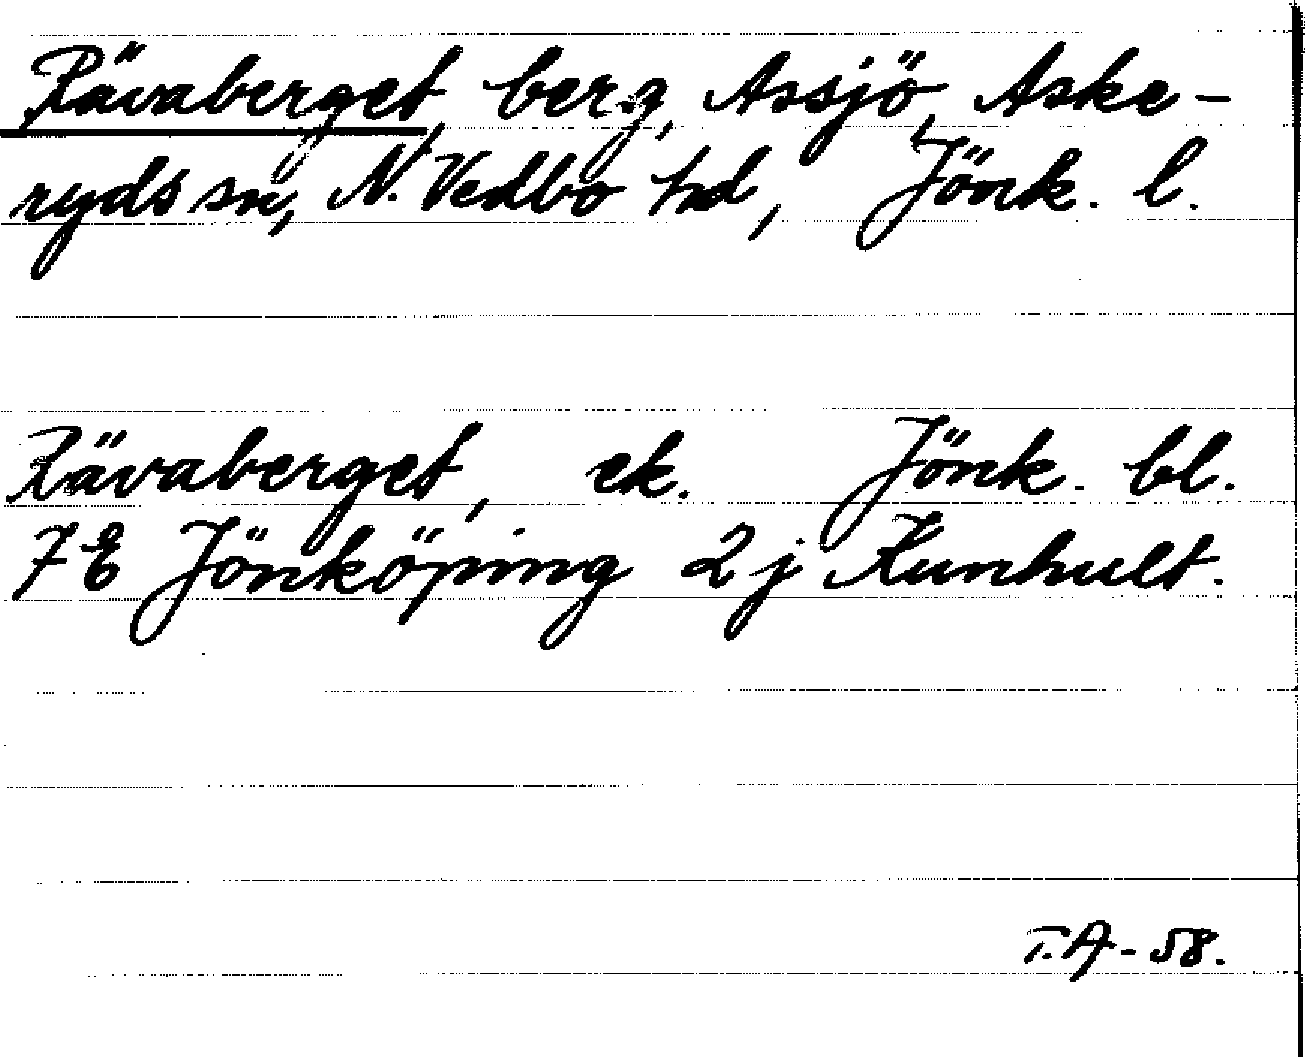 Rävaberget, berg, Assjö, Aske-
ryds sn, N. Vedbo hd, Jönk. l.
Rävaberget, ek. Jönk. bl.
7E Jönköping 2j Kunhult.
T.A-58.